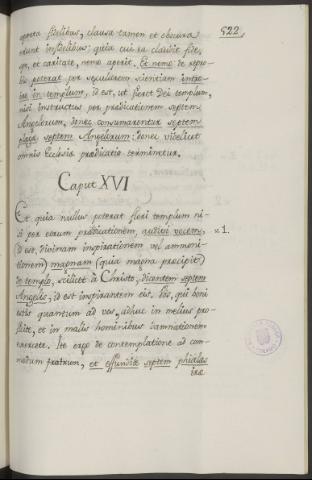 522.
aperta fidelibus, clausa tamen et obscura
sunt infidelibus; quia cui ea claudit fide,
spe, et caritate, nemo aperit. Et nemo de repro-
bis poterat per secularem scientiam intro-
ire in templum, id est, ut fieret Dei templum,
nisi instructus per prædicationem septem
Angelorum, donec consumarentur septem
plagæ septem Angelorum: donec videlicet
omnis Ecclesiæ prædicatio terminetur.
Caput XVI
Et, quia nullus poterat fieri templum ni-
si per eorum prædicationem, audivi vocem, v. 1.
id est, divinam inspirationem vel ammoni-
tionem) magnam (quia magna præcipit)
de templo, scilicet à Christo, dicentem septem
Angelis, id est inspirantem eis. Vos, qui boni
estis quantum ad vos, adhuc in melius pro-
ficite, et in malis hominibus damnationem
exercete. Ite ergo de contemplatione ad com-
modum fratrum, et effundite septem phialas
iræ